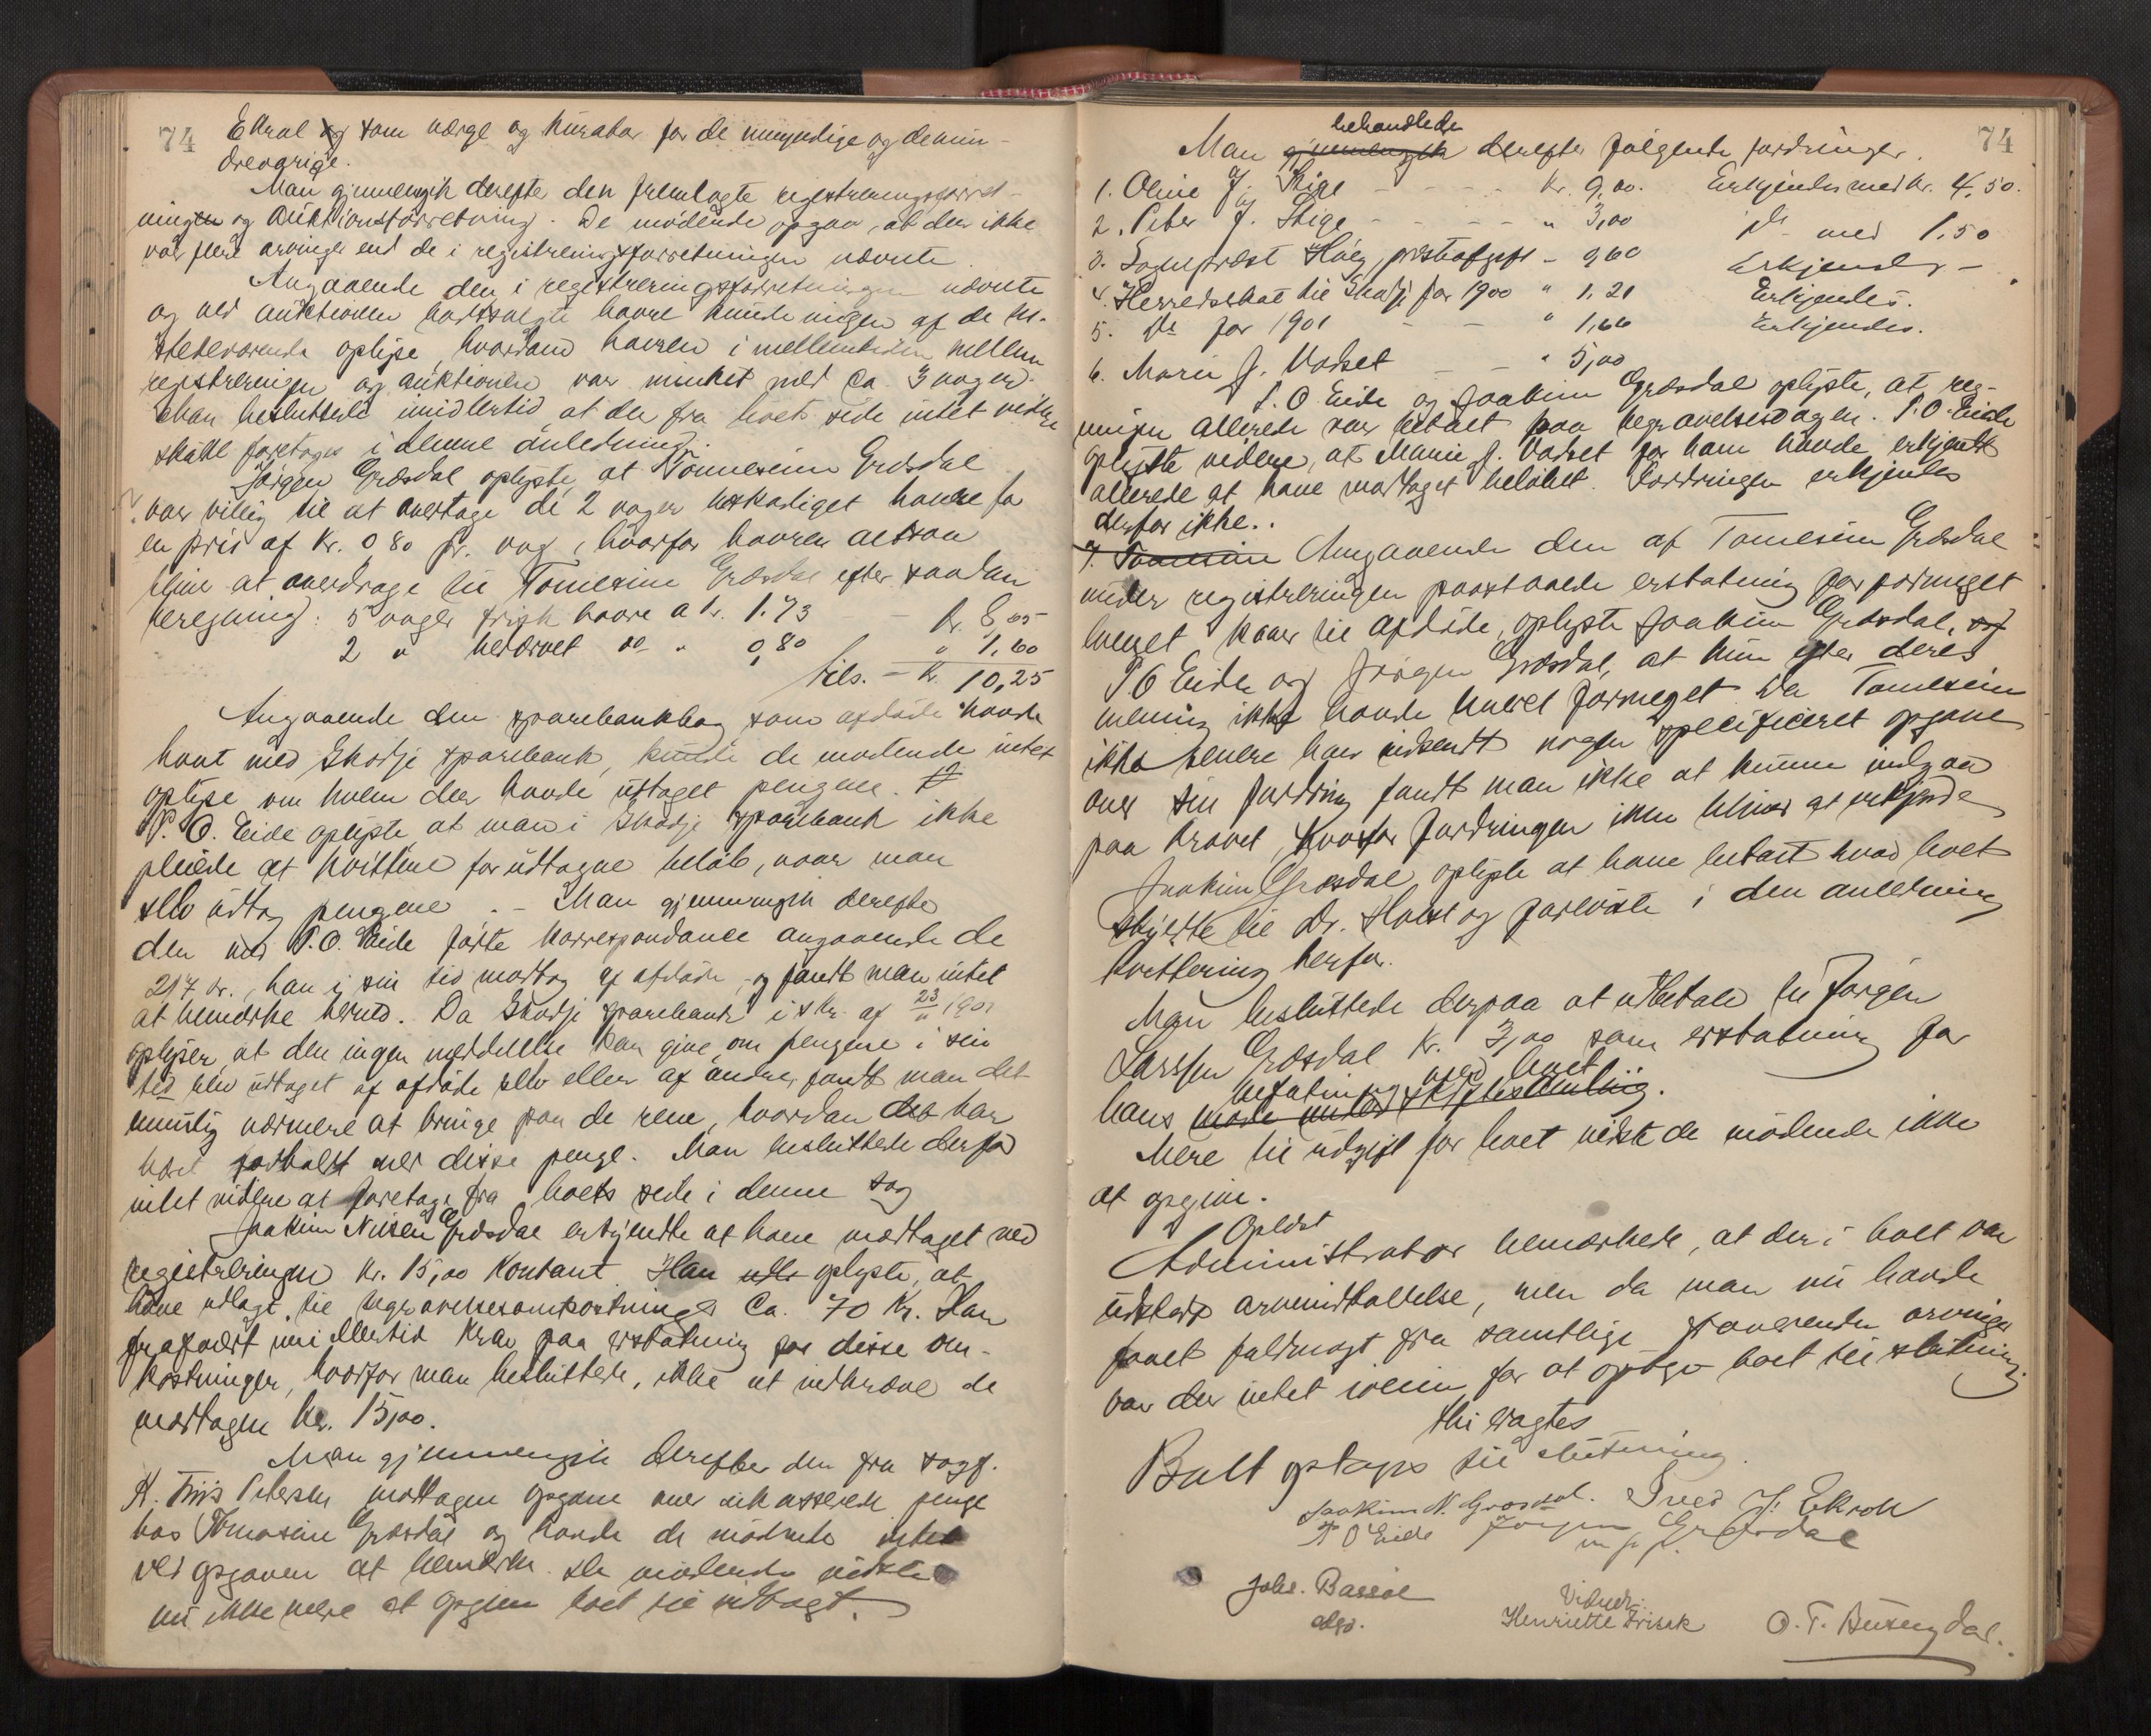 74
Ekrol og som værge og kurator for de umyndige og demin-
dreaarige.
Man gjennemgik derefter den fremlagte registreringsforret-
ningen og auktionsforretning. De mødende opgav, at der ikke
var flere arvinger end de i registreringsforretningen nævnte.
Angaaende den i registreringsforretningen nævnte
og ved auktionen bortsolgte havre kunde ingen af de til-
stedeværende oplyse, hvordan havren i mellemtiden mellem
registreringen og auktionen var minket med Ca. 3 voger.
Man besluttede imidlertid, at der fra boets side intet videre
skulde foretages i denne anledning.
Jørgen Græsdal oplyste, at Tomesine Græsdal
var villig til at overtage de 2 voger beskadiget havre for
en pris af Kr. 0 80 pr. vog, hvorfor havren altsaa
blive at overdrage til Tomesine Græsdal efter saadan
beregning: 5 voger frisk havre a kr. 1.73 - kr. 8,65
2 " bedærvet do " 0,80 " 1,60
tils. - Kr. 10,25
Angaaende den sparebankbog som afdøde havde
havt med Skodje sparebank, kunde de mødende intet
oplyse om hvem der havde uttaget pengene.
P. O. Eide oplyste, at man i Skodje sparebank ikke
pleiede at kvittere for udtagne beløb, naar man
selv udtog pengene. - Man gjennemgik derefter
den med P.O. Eide førte korrespondance angaaende de
217 kr., han i sin tid modtog af afdøde, og fandt man intet
at bemærke herved. Da Skodje sparebank i skr. af 23/11 1901
oplyser, at den ingen meddelelse kan give om pengene i sin
tid blev udtaget af afdøde selv eller af andre, fandt man det
umulig nærmere at bringe paa de rene, hvordan det har
været forholdt med disse penge. Man besluttede derfor
intet videre at foretage fra boets side i denne sag
Joakim Nilsen Græsdal erkjendte at have modtaget ved
registreringen kr. 15,00 kontant. Han oplyste, at
have udlagt til begravelsesomkostninger Ca. 70 Kr. Han
frafaldt imidlertid krav paa erstatning for disse om-
kostninger, hvorfor man besluttede, ikke at indkræve de
modtagne kr. 15,00.
Man gjennemgik derefter den fra sagf.
K. Friis Petersen modtagen opgave over inkasserede penge
hos Tomasine Græsdal og havde de mødende intet
ved opgaven at bemærke. De mødende vidste
nu ikke mere at opgive boet til indtægt.
74
behandlede
Man gjennemgik derefter følgende fordringer.
1. Oline J. Stige - - - - kr. 9,00. Erkjendes med kr. 4,50.
2. Peter J. Stige - - - - " 3,00 do med 1,50
3. Sogneprest Høeg, presteafgift - 9,60 Erkjendes -
4. Herredskat til Skodje for 1900 " 1,21 Erkjendes.
5. do for 1901 - - " 1,66 Erkjendes.
6. Marie J. Vadset - - " 5,00
P. O. Eide og Joakim Græsdal oplyste, at reg-
ningen allerede var betalt paa begravelsesdagen. P.O. Eide
oplyste videre, at Marie J. Vadset for ham havde erkjendt
allerede at have modtaget beløbet. Fordringen erkjendes
derfor ikke..
7. Tomesine Angaaende den af Tomesine Græsdal
under registreringen paastaaede erstatning for formeget
leveret kaar til afdøde, oplyste Joakim Græsdal, og
P O Eide og Jørgen Græsdal, at hun efter deres
mening ikke havde leveret formeget. Da Tomesine
ikke senere har indsendt nogen specificeret opgave
over sin fordring fandt man ikke at kunne indgaa
paa kravet, hvorfor fordringen ikke bliver at erkjende
Joakim Græsdal oplyste at have betalt hvad boet
skyldte til Dr. Holst og foreviste i den anledning
kvittering herfor.
Man besluttede derpaa at udbetale til Jørgen
Larssen Græsdal kr. 3,00 som erstatning for
befatning med boet
hans møde under skiftesamling.
Mere til udgift for boet vidste de mødende ikke
at opgive.
Oplæst
Administrator bemærkede, at der i boet var
udstedt arveindkaldelse, men da man nu havde
faaet fuldmagt fra samtlige fraværende arvinger
var der intet iveien for at optage boet til slutning
thi eragtes
Boet optages til slutning.
Joakim N. Græsdal. Sved J. Ekroll
P O Eide Jørgen Græsdal
m. f. p.
Johs. Bassøe
Vidner:
Henriette Frisak O. T. Busengdal.